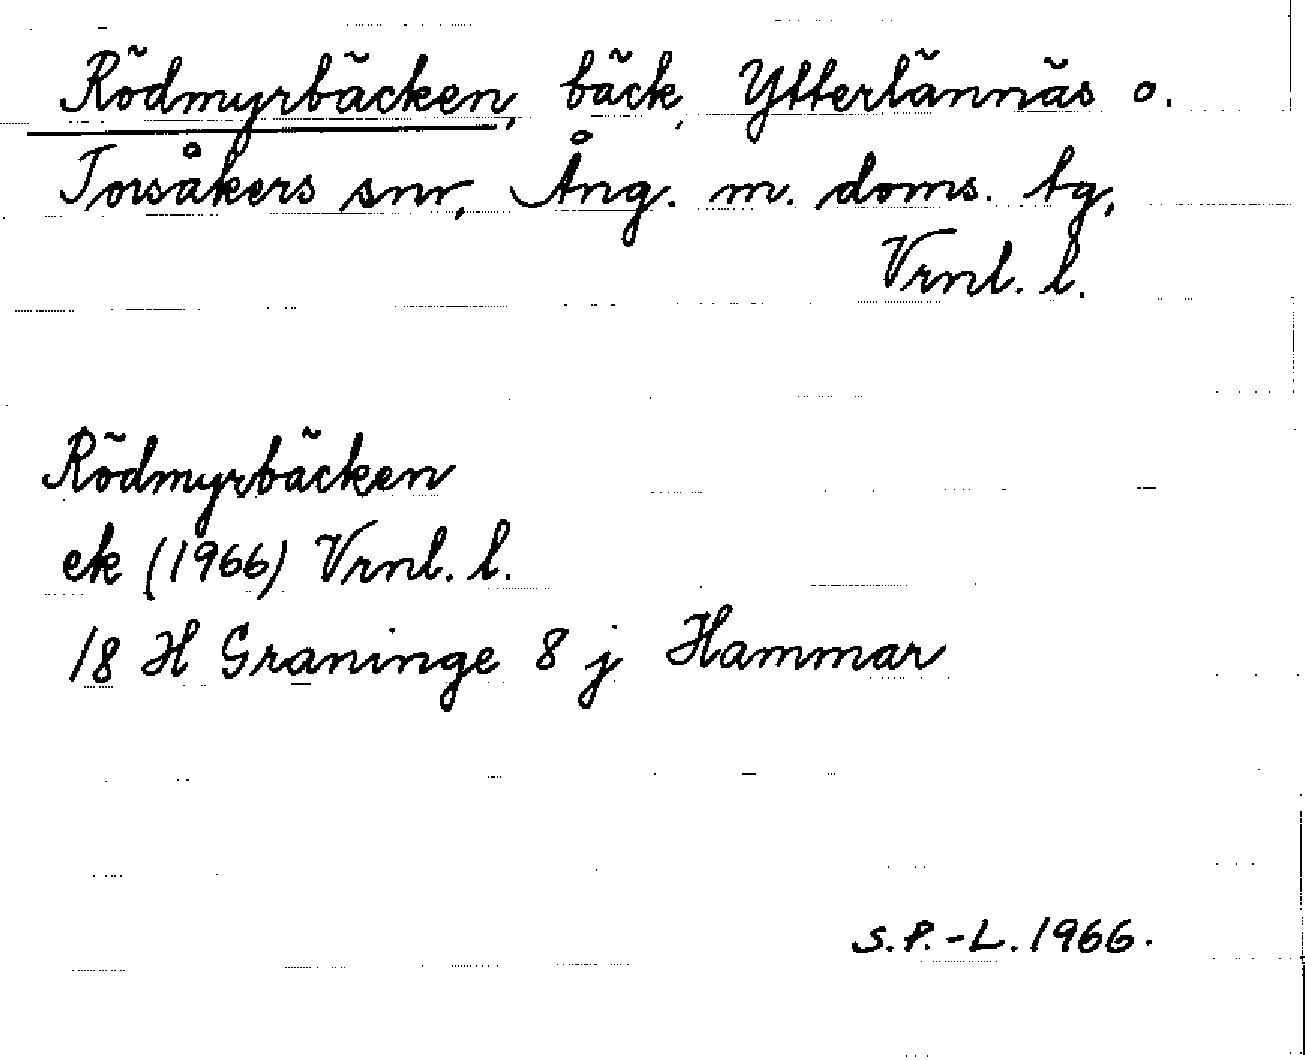 Rödmyrbäcken, bäck, Ytterlännäs o.
Torsåkers snr, Ång. m. doms. tg,
Vrnl. l.
Rödmyrbäcken
ek (1966) Vrnl. l.
18 H Graninge 8 j Hammar
S.P.-L. 1966.